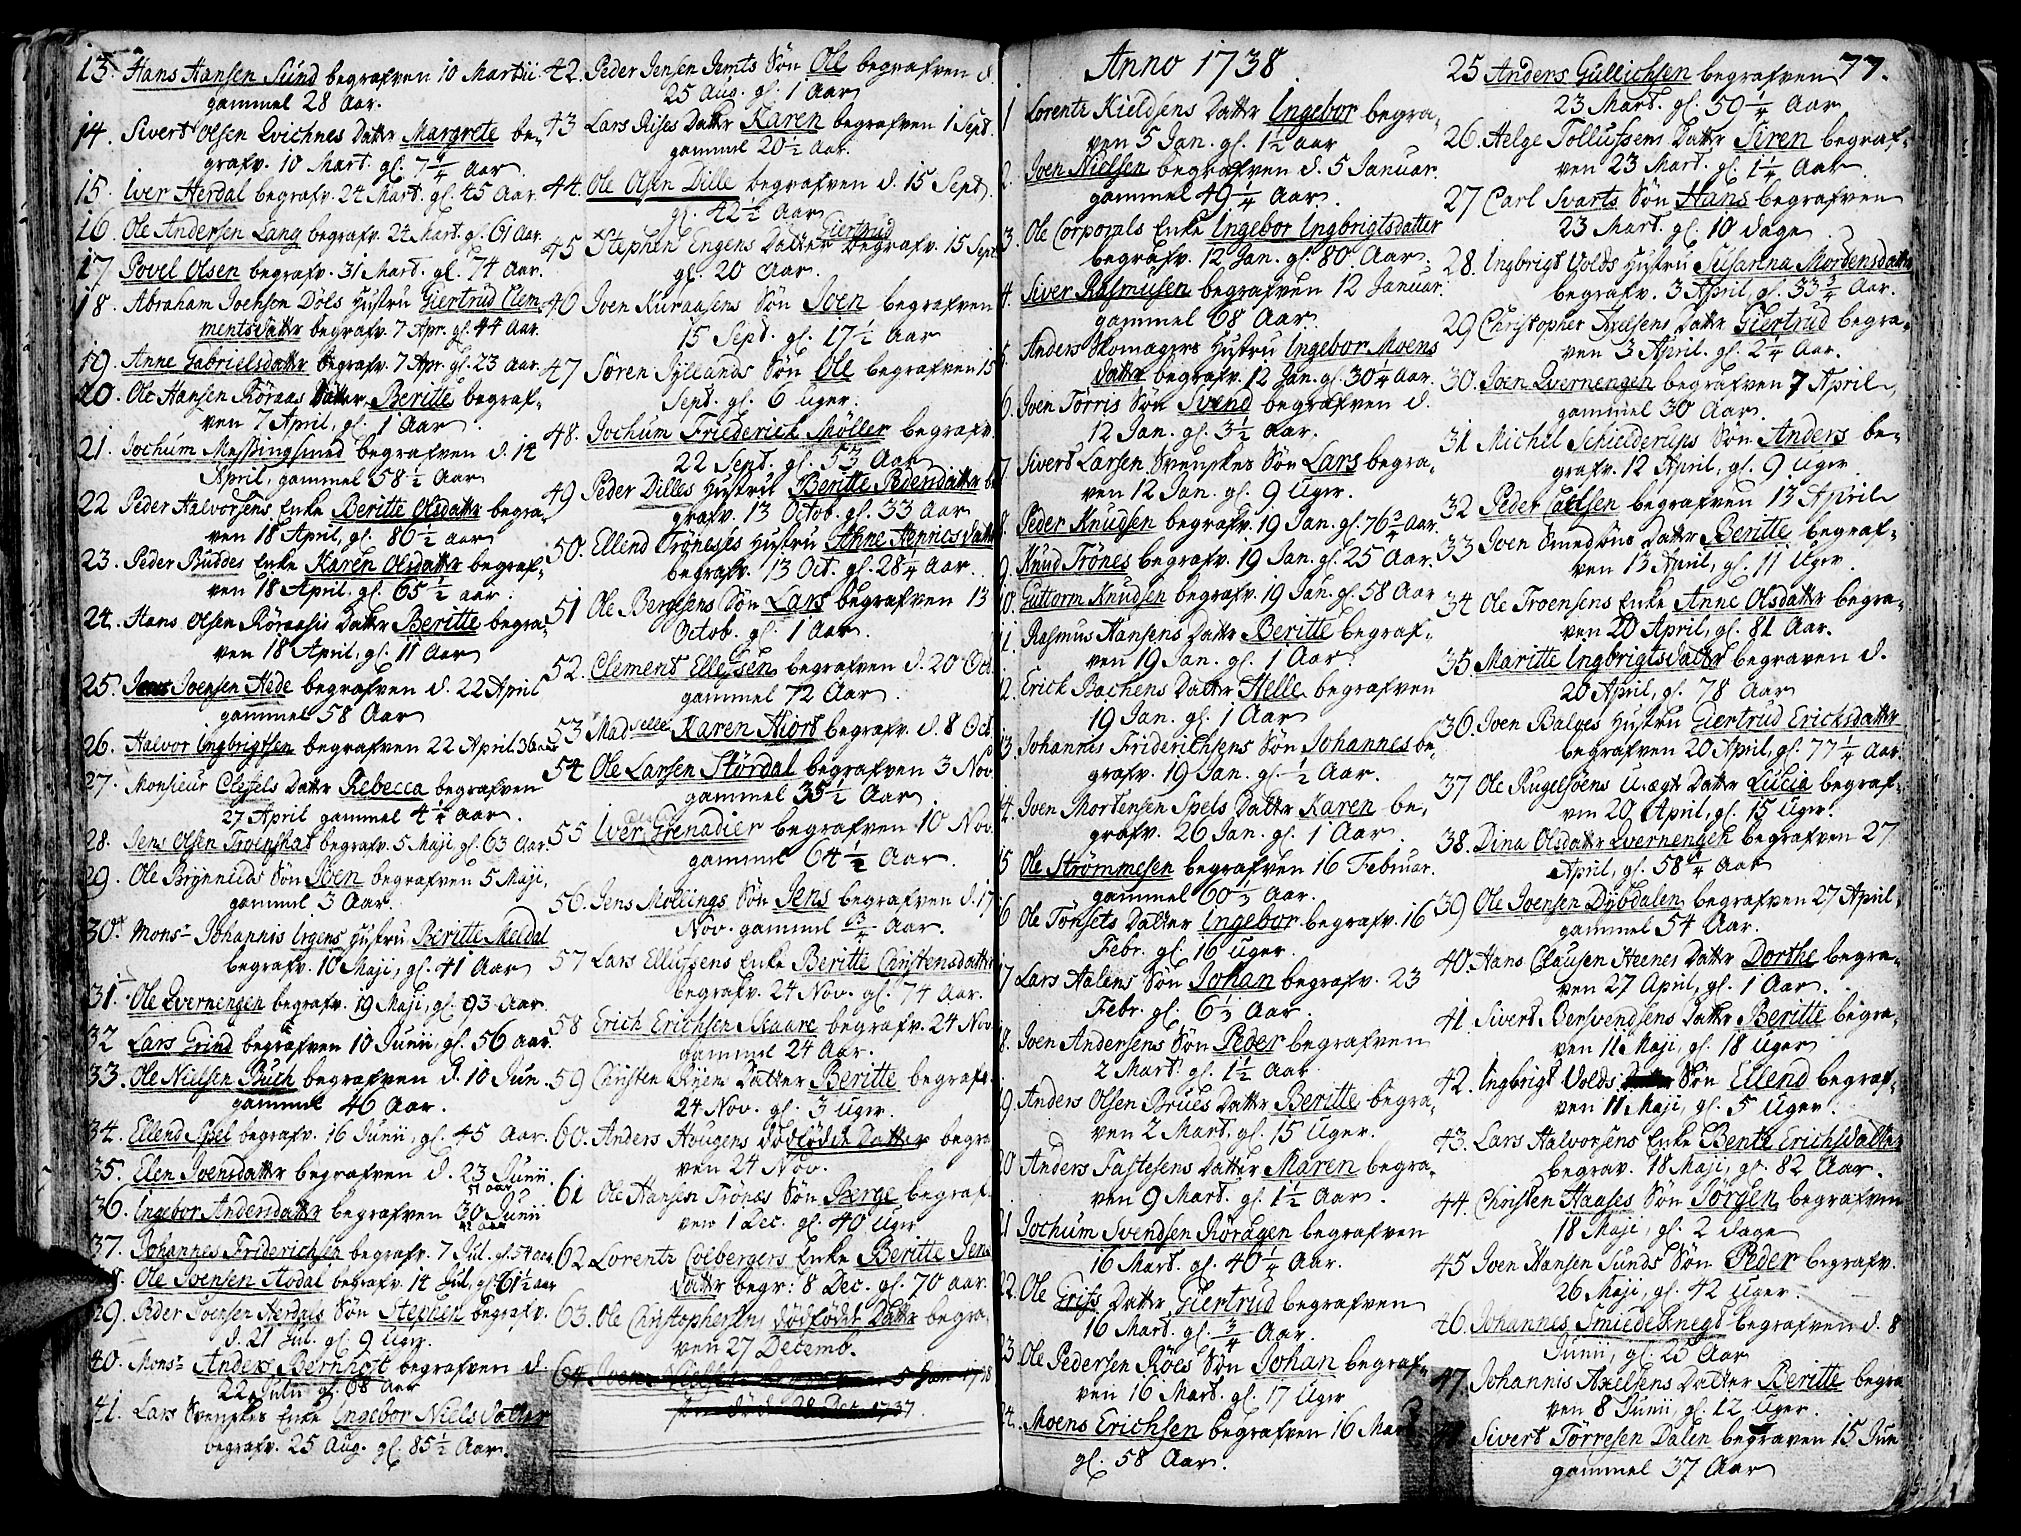 13. Hans Hansen Sund begrafven 10 Martii
gammel 28 Aar.
14. Sivert Olsen Qvichnes Datter Margrete be-
grafv. 10 Mart. gl. 7 1/4 Aar
15. Iver Herdal begrafv. 24 Mart. gl. 45 Aar
16. Ole Andersen Lang begrafv. 24 Mart. gl. 61 Aar.
17. Povel Olsen begrafv. 31 Mart. gl. 74 Aar.
18. Abraham Joensen Döls Hustru Giertrud Clem-
mentsdattr begrafv. 7 Apr. gl. 44 Aar.
19. Anne Gabrielsdattr begrafv. 7 Apr. gl. 23 aar.
20. Ole Hansen Röraas Datter Beritte begraf-
ven 7 April, gl. 1 Aar
21. Jochum Messingsmed begrafven d. 14
April, gammel 58 1/2 Aar
22 Peder Halvorsens Enke Beritte Olsdattr begra-
ven 18 April, gl. 86 1/2 aar
23. Peder Buddes Enke Karen Olsdattr begraf-
ven 18 April. gl. 65 1/2 aar.
24. Hans Olsen Röraases Dattr Beritte begra-
ven 18 April, gl. 11 Aar
25. Joensen Hede begrafven d. 22 April
gammel 58 Aar
26. Halvor Ingbrigtsen begrafven 22 April 36 aar
27. Monsieur Clefels Dattr Rebecca begrafven
27 April gammel 4 1/4 Aar.
28. Jens Olsen Troenskat begrafv. 5 Maji gl. 63 Aar.
29. Ole Brynnilds Sön Joen begrafven 5 Maji,
gammel 3 Aar.
30. Monsr Johannis Irgens Hustru Beritte Meldal
begrafv. 10 Maji, gl. 41 Aar
31. Ole Qvernengen begrafv. 19 Maji, gl. 93 Aar.
32 Lars Grind begrafven 10 Junii, gl. 56 aar.
33. Ole Nielsen Buch begrafven d. 10 Jun.
gammel 46 Aar.
34. Ellend Spel begrafv. 16 Junii, gl. 45 Aar
35. Elen Joensdattr begrafven d. 23 Junii.
51 aar
36. Ingebor Andersdattr begrafven 30 Junii
37. Johannes Friderichsen begrafv. 7 Jul. gl. 54 aar
38. Ole Joensen Aadal begrafv. 14 Jul, gl. 61 1/2 aar
39. Peder Joensen Herdals Sön Stephen begrafv.
d. 21 Jul. gl. 9 Uger.
40. Monsr Anders Bernhoft begrafven d.
22 Julii gl. 68 aar
41. Lars Svenskes Enke Ingebor Nielsdatter
begrafv. 25 Aug. gl. 85 1/2 Aar.
42. Peder Jensen Jemts Sön Ole begrafven d.
25 Aug. gl. 1 Aar
43 Lars Rises Dattr Karen begrafven 1 Sept.
gammel 20 1/2 Aar.
44. Ole Olsen Dille begrafven d. 15 Sept.
gl. 42 1/2 Aar
Giertrud
45 Stephen Engens Datter begrafv. 15 Sept
gl. 20 Aar.
46 Joen Kuraasens Sön Joen begrafven
15 Sept. gl. 17 1/2 Aar
47 Sören Jyllands Sön Ole begrafven 15
Sept. gl. 6 Uger.
48. Jochum Friederick Möller begrafv.
22 Sept. gl. 53 Aar
49 Peder Dilles Hustru Beritte Pedersdattr be
grafv. 13 Octob. gl. 33 Aar
50. Ellend Tröneses Hustru Anne dattr
begrafv. 13 Oct. gl. 28 1/4 Aar.
51 Ole Bergesens Sön Lars begrafven 13
Octob. gl. 1 Aar.
52. Clement Ellefsen begrafven d. 20 Oct.
gammel 72 Aar.
53 Madselle Karen Hiort begrafv. d. 8 Oct
54 Ole Larsen Stördal begrafven 3 Nov.
gammel 35 1/2 Aar
55 Iver Grenadier begrafven 10 Nov.
gammel 64 1/2 Aar.
56. Jens Mollings Sön Jens begrafven d. 17
Nov. gammel 3/4 Aar.
57 Lars Ellefsens Enke Beritte Christensdattr
begrafv. 24 Nov. gl. 74 Aar.
58 Erich Erichsen Skaare begrafv. 24 Nov
gammel 24 Aar.
59 Christen Ryens Datter Beritte begrafv.
24 Nov. gl. 3 Uger.
60. Anders Hougens dödfödde Datter begra
ven 24 Nov.
61 Ole Hansen Trönes Sön Berge begraf-
ven 1 Dec. gl. 40 Uger
62 Lorentz Colbergers Enke Beritte Jens
dattr begr: 8 Dec. gl. 70 aar.
63. Ole Christophersens dödfödde Dattr begra-
ven 27 Decemb.
64 Joen 5 Jan 1738
Dec. 1737.
Anno 1738.
1 Lorentz Kieldsens Dattr Ingebor begra-
ven 5 Jan. gl. 1 1/2 aar
2. Joen Nielsen begrafven d. 5 Januar.
gammel 49 1/4 Aar.
3. Ole Corporals Enke Ingebor Ingbrigtsdatter
begrafv. 12 Jan. gl. 80 Aar.
4. Siver Rasmusen begrafven 12 Januar.
gammel 68 Aar.
5. Anders Skomagers Hustru Ingebor Moens
dattr begrafv. 12 Jan. gl. 30 1/4 Aar.
6. Joen Törris Sön Svend begrafven d.
12 Jan. gl. 3 1/2 Aar.
7. Sivert Larsen Svenskes Sön Lars begra-
ven 12 Jan. gl. 9 Uger.
8. Peder Knudsen begrafv. 19 Jan. gl. 76 3/4 Aar.
9. Knud Trönes begrafv. 19 Jan. gl. 25 Aar.
10. Guttorm Knudsen begrafv. 19 Jan. gl. 58 Aar
11. Rasmus Hansens Dattr Beritte begraf-
ven 19 Jan. gl. 1 Aar.
12. Erick Bachens Datter Helle begrafven
19 Jan. gl. 1 Aar
13. Johannis Friderichsens Sön Johannes be-
grafv. 19 Jan. gl. 1/2 Aar.
14. Joen Mortensen Spels Datter Karen be-
grafv. 26 Jan. gl. 1 Aar.
15 Ole Strömmesen begrafven 16 Februar.
gammel 60 1/3 Aar.
16 Ole Tönsets Datter Ingebor begrafv. 16
Febr. gl. 16 Uger.
17 Lars Aalens Sön Johan begrafv. 23
Febr. gl. 6 1/3 Aar.
18. Joen Andersens Sön Peder begrafven
2 Mart. gl. 1 1/2 Aar
19. Anders Olsen Brues Dattr Beritte begra-
ven 2 Mart. gl. 15 Uger.
20 Anders Fastesens Datter Maren begra-
ven 9 Mart. gl. 1 1/2 Aar.
21 Jochum Svendsen Röragen begrafven
16 Mart. gl. 40 1/4 Aar.
22. Ole Grifs Datter Giertrud begrafven
16 Mart. gl. 3/4 Aar.
23. Ole Pedersen Röes Sön Johan begraf-
ven 16 Mart. gl. 17 Uger
24. Moens Erichsen begrafven 16 Mart.
gl. 58 Aar.
77.
25 Anders Gullichsen begrafven
23 Mart. gl. 59 1/4 Aar
26. Helge Tollufsens Datter Siren begraf-
ven 23 Mart. gl. 1 1/4 Aar.
27 Carl Svarts Sön Hans begrafven
23 Mart. gl. 10 dage
28. Ingbrigt Volds Hustru Susanna Mordensdattr
begrafv. 3 April, gl. 33 3/4 Aar.
29 Christopher Axelsens Dattr Giertrud begra-
ven 3 April. gl. 2 1/4 Aar.
30. Joen Qvernengen begrafven 7 April,
gammel 30 Aar.
31 Michel Schielderups Sön Anders be-
grafv. 12 April, gl. 9 Uger
32 Peder begrafven 13 April
33 Joen Smedsöns Dattr Beritte begraf-
ven 13 April, gl. 11 Uger.
34 Ole Troensens Enke Anne Olsdattr begra-
ven 20 April, gl. 81 Aar.
35. Maritte Ingbrigtsdattr begraven d.
20 April, gl. 78 Aar
36. Joen Balges Hustru Giertrud Ericksdattr
begrafven 20 April, gl. 77 1/4 Aar
37 Ole Rugelsöens Uægt Datter Lucia begraf-
ven 20 April, gl. 15 Uger.
38. Dina Olsdattr Qvernengen begrafven 27
April, gl. 58 1/4 Aar
39 Ole Joensen Dybdalen begrafven 27 April.
gammel 54 Aar.
40. Hans Clausen Heenes Dattr Dorthe begra-
ven 27 April, gl. 1 Aar.
41. Sivert Bersvendsens Datter Beritte begra-
ven 11 Maji, gl. 18 Uger
42. Ingbrigt Volds Sön Ellend begraf-
ven 11 Maji, gl. 5 Uger.
43. Lars Halvorsens Enke Bente Erichsdatter
begrav. 18 Maji, gl. 82 Aar.
44. Christen Haases Sön Jörgen begrafven
18 Maji, gl. 2 dage
45 Joen Hansen Sunds Sön Peder begrafv.
26 Maji, gl. 42 Uger.
46. Johannes Smiedeknegt begrafven d. 8
Junii, gl. 25 Aar
47 Johannis Axelsens Datter Beritte begra
ven 8 Junii, gl. 12 Uger.
Sivert Törresen Dalen begraven 15 Jun
gammel 37 Aar